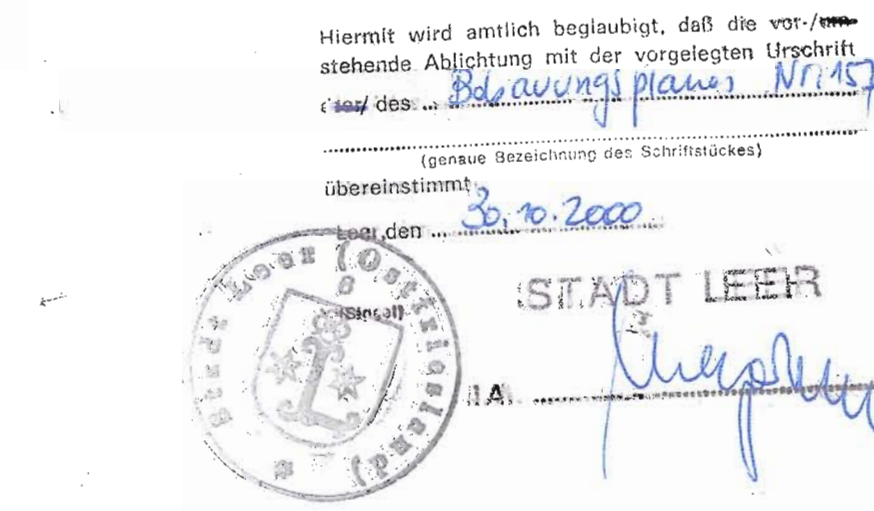 Hiermit wird amtlich beglaubigt, daß die vor-/
stehende Ablichtung mit der vorgelegten Urschrift
des ... Bebauungsplanes Nr. 157
(genaue Bezeichnung des Schriftstückes)
übereinstimmt
Leer, den ... 30.10.2000
(Siegel)
Stadt Leer (Ostfriesland)
8
STADT LEER
I.A.